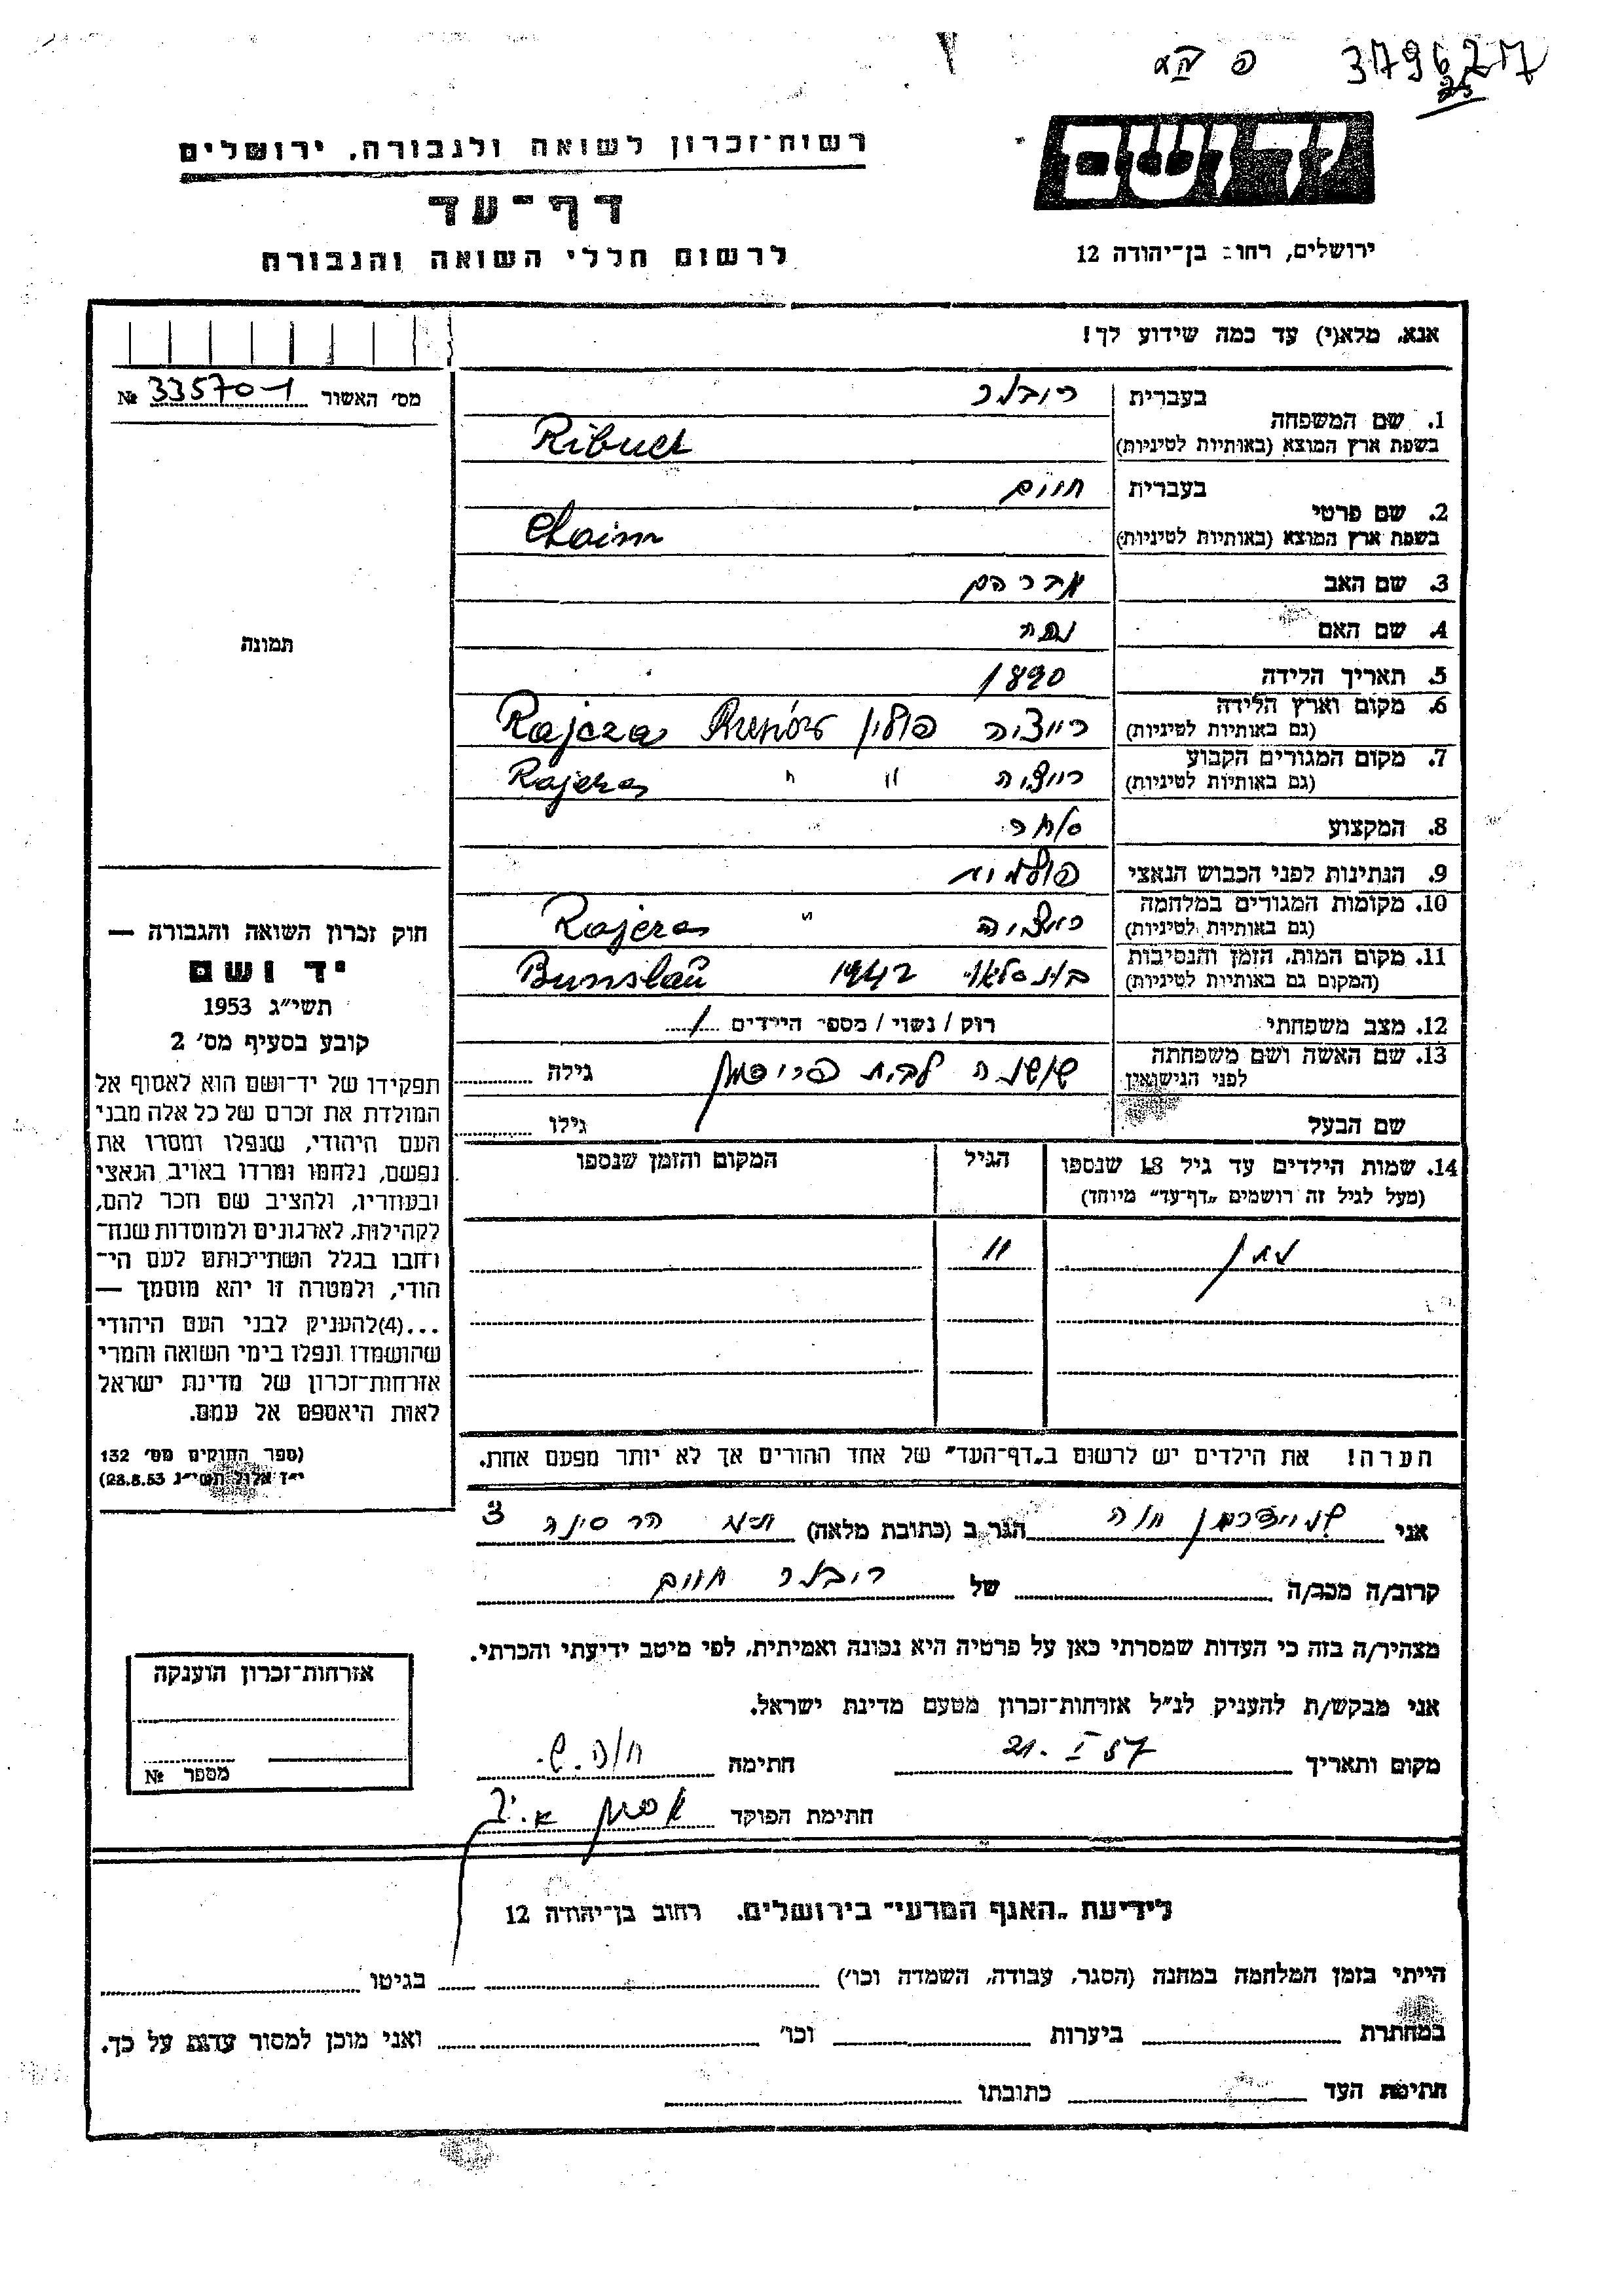 379627
יד ושם
ירושלים, רחוב בן־יהודה 12
רשות־זכרון לשואה ולגבורה, ירושלים
דף־עד
לרשום חללי השואה והגבורה
אנא, מלא(י) עד כמה שידוע לך!
מס׳ האשור 33570-1 №
תמונה
1. שם המשפחה בעברית
בשפת ארץ המוצא (באותיות לטיניות)
2. שם פרטי בעברית חיים
בשפת ארץ המוצא (באותיות לטיניות) Chaim
3. שם האב אברהם
4. שם האם
5. תאריך הלידה 1890
6. מקום וארץ הלידה
(גם באותיות לטיניות) פולין
7. מקום המגורים הקבוע
(גם באותיות לטיניות) " "
8. המקצוע סוחר
9. הנתינות לפני הכבוש הנאצי פולנית
10. מקומות המגורים במלחמה
(גם באותיות לטיניות) "
11. מקום המות, הזמן והנסיבות
(המקום גם באותיות לטיניות) בונסלאו 1942 Bunslau
12. מצב משפחתי רווק / נשוי / מספר הילדים 1
13. שם האשה ושם משפחתה
לפני הנישואין שושנה לבית גילה
שם הבעל גילו
14. שמות הילדים עד גיל 18 שנספו הגיל המקום והזמן שנספו
(מעל לגיל זה רושמים „דף־עד” מיוחד)
נתן 11
הערה! את הילדים יש לרשום ב„דף־העד” של אחד ההורים אך לא יותר מפעם אחת.
חוק זכרון השואה והגבורה —
יד ושם
תשי״ג 1953
קובע בסעיף מס׳ 2
תפקידו של יד־ושם הוא לאסוף אל
המולדת את זכרם של כל אלה מבני
העם היהודי, שנפלו ומסרו את
נפשם, נלחמו ומרדו באויב הנאצי
ובעוזריו, ולהציב שם וזכר להם,
לקהילות, לארגונים ולמוסדות שנח־
רבו בגלל השתייכותם לעם הי־
הודי, ולמטרה זו יהא מוסמך —
...(4) להעניק לבני העם היהודי
שהושמדו ונפלו בימי השואה והמרי
אזרחות־זכרון של מדינת ישראל
לאות היאספם אל עמם.
(ספר החוקים מס׳ 132
י״ז אלול תשי״ג 28.8.53)
אני חנה הגר ב (כתובת מלאה) הר סיני 3
קרוב/ה מכר/ה של חיים
מצהיר/ה בזה כי העדות שמסרתי כאן על פרטיה היא נכונה ואמיתית, לפי מיטב ידיעתי והכרתי.
אני מבקש/ת להעניק לנ״ל אזרחות־זכרון מטעם מדינת ישראל.
מקום ותאריך 21. I 57 חתימה חנה.ש.
חתימת הפוקד
אזרחות־זכרון הוענקה
מספר №
לידיעת „האגף המדעי” בירושלים, רחוב בן־יהודה 12
הייתי בזמן המלחמה במחנה (הסגר, עבודה, השמדה וכו׳) בגיטו
במחתרת ביערות וכו׳ ואני מוכן למסור עדות על כך.
חתימת העד כתובתו